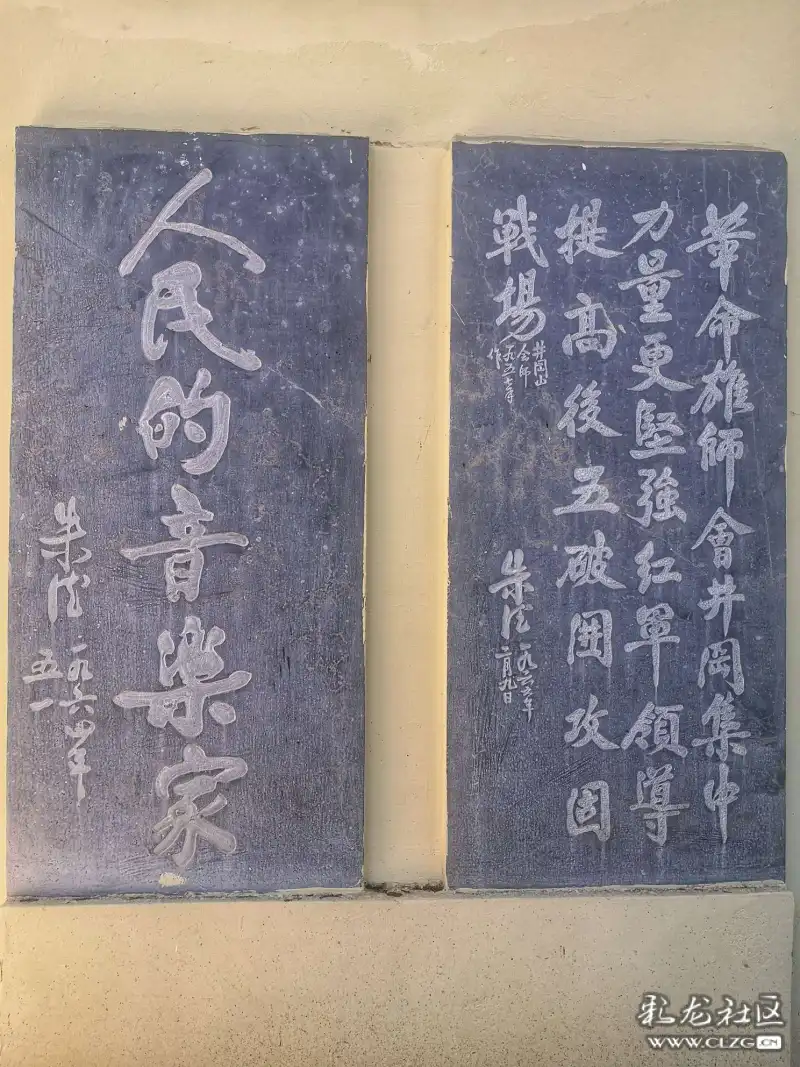 革命雄師會井岡集中
力量更堅強红軍領導
提高後五破囲攻固
戰場
井岡山
会師
一九五七年
作
朱德
一九六三年
二月九日
人民的音樂家
朱德
一九六四年
五一
彩龙社区
WWW.CLZG.CN